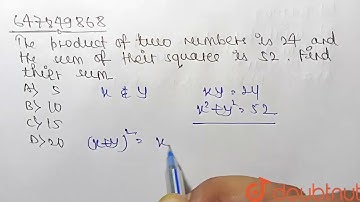 647849868
The product of two numbers is 24 and
the sum of their squares is 52. Find
their sum
A) 5
B) 10
C) 15
D) 20
x & y
xy = 24
x² + y² = 52
(x+y)² = x
doubtnut